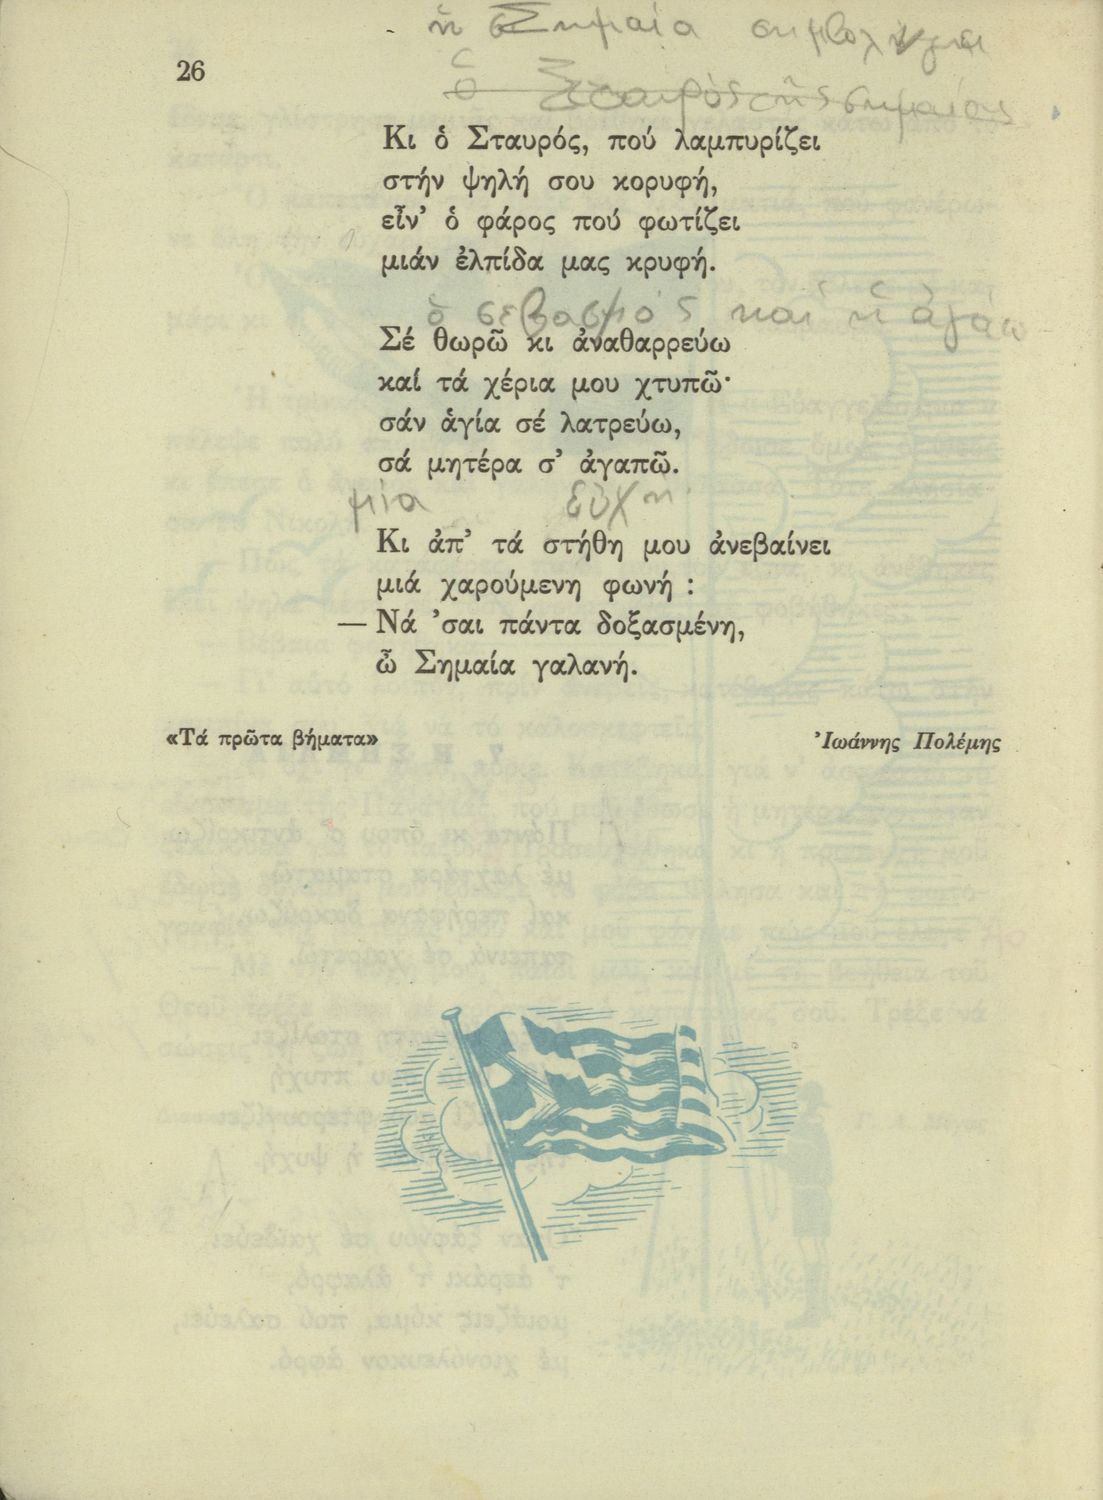 ἡ Σημαία συμβολίζει
26
ὁ Σταυρὸς τῆς σημαίας
Κι ὁ Σταυρός, πού λαμπυρίζει
στήν ψηλή σου κορυφή,
εἶν’ ὁ φάρος πού φωτίζει
μιάν ἐλπίδα μας κρυφή.
ὁ σεβασμός καί ἡ ἀγάπ
Σέ θωρῶ κι ἀναθαρρεύω
καί τά χέρια μου χτυπῶ·
σάν ἁγία σέ λατρεύω,
σά μητέρα σ’ ἀγαπῶ.
μία εὐχή
Κι ἀπ’ τά στήθη μου ἀνεβαίνει
μιά χαρούμενη φωνή :
— Νά ’σαι πάντα δοξασμένη,
ὦ Σημαία γαλανή.
«Τά πρῶτα βήματα» Ἰωάννης Πολέμης